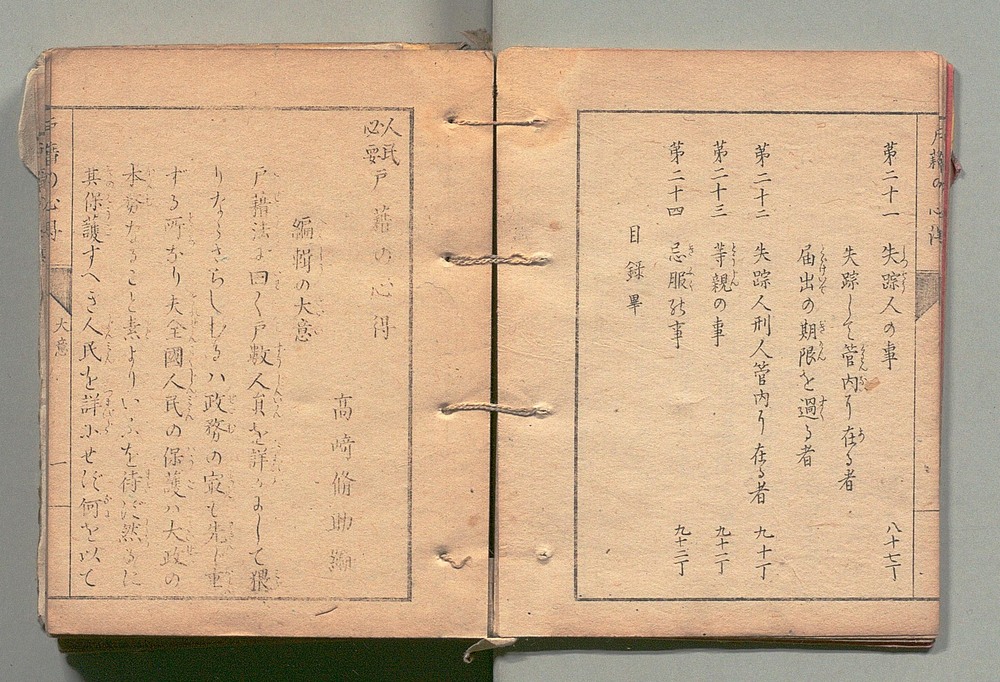 戸籍の心得
第二十一 失踪人の事 八十七丁
失踪して管内に在る者
届出の期限を過る者
第二十二 失踪人刑人管内に在る者 九十丁
第二十三 等親の事 九十一丁
第二十四 忌服の事 九十二丁
目録畢
人民必要 戸籍の心得
高崎脩助編
編輯の大意
戸籍法に曰く戸数人員を詳かにして猥
りならざらしむるハ政務の最も先じ重
ずる所なり夫全國人民の保護ハ大政の
本務なること素よりいふを待ず然るに
其保護すへき人民を詳にせず何を以て
戸籍の心得
大意 一